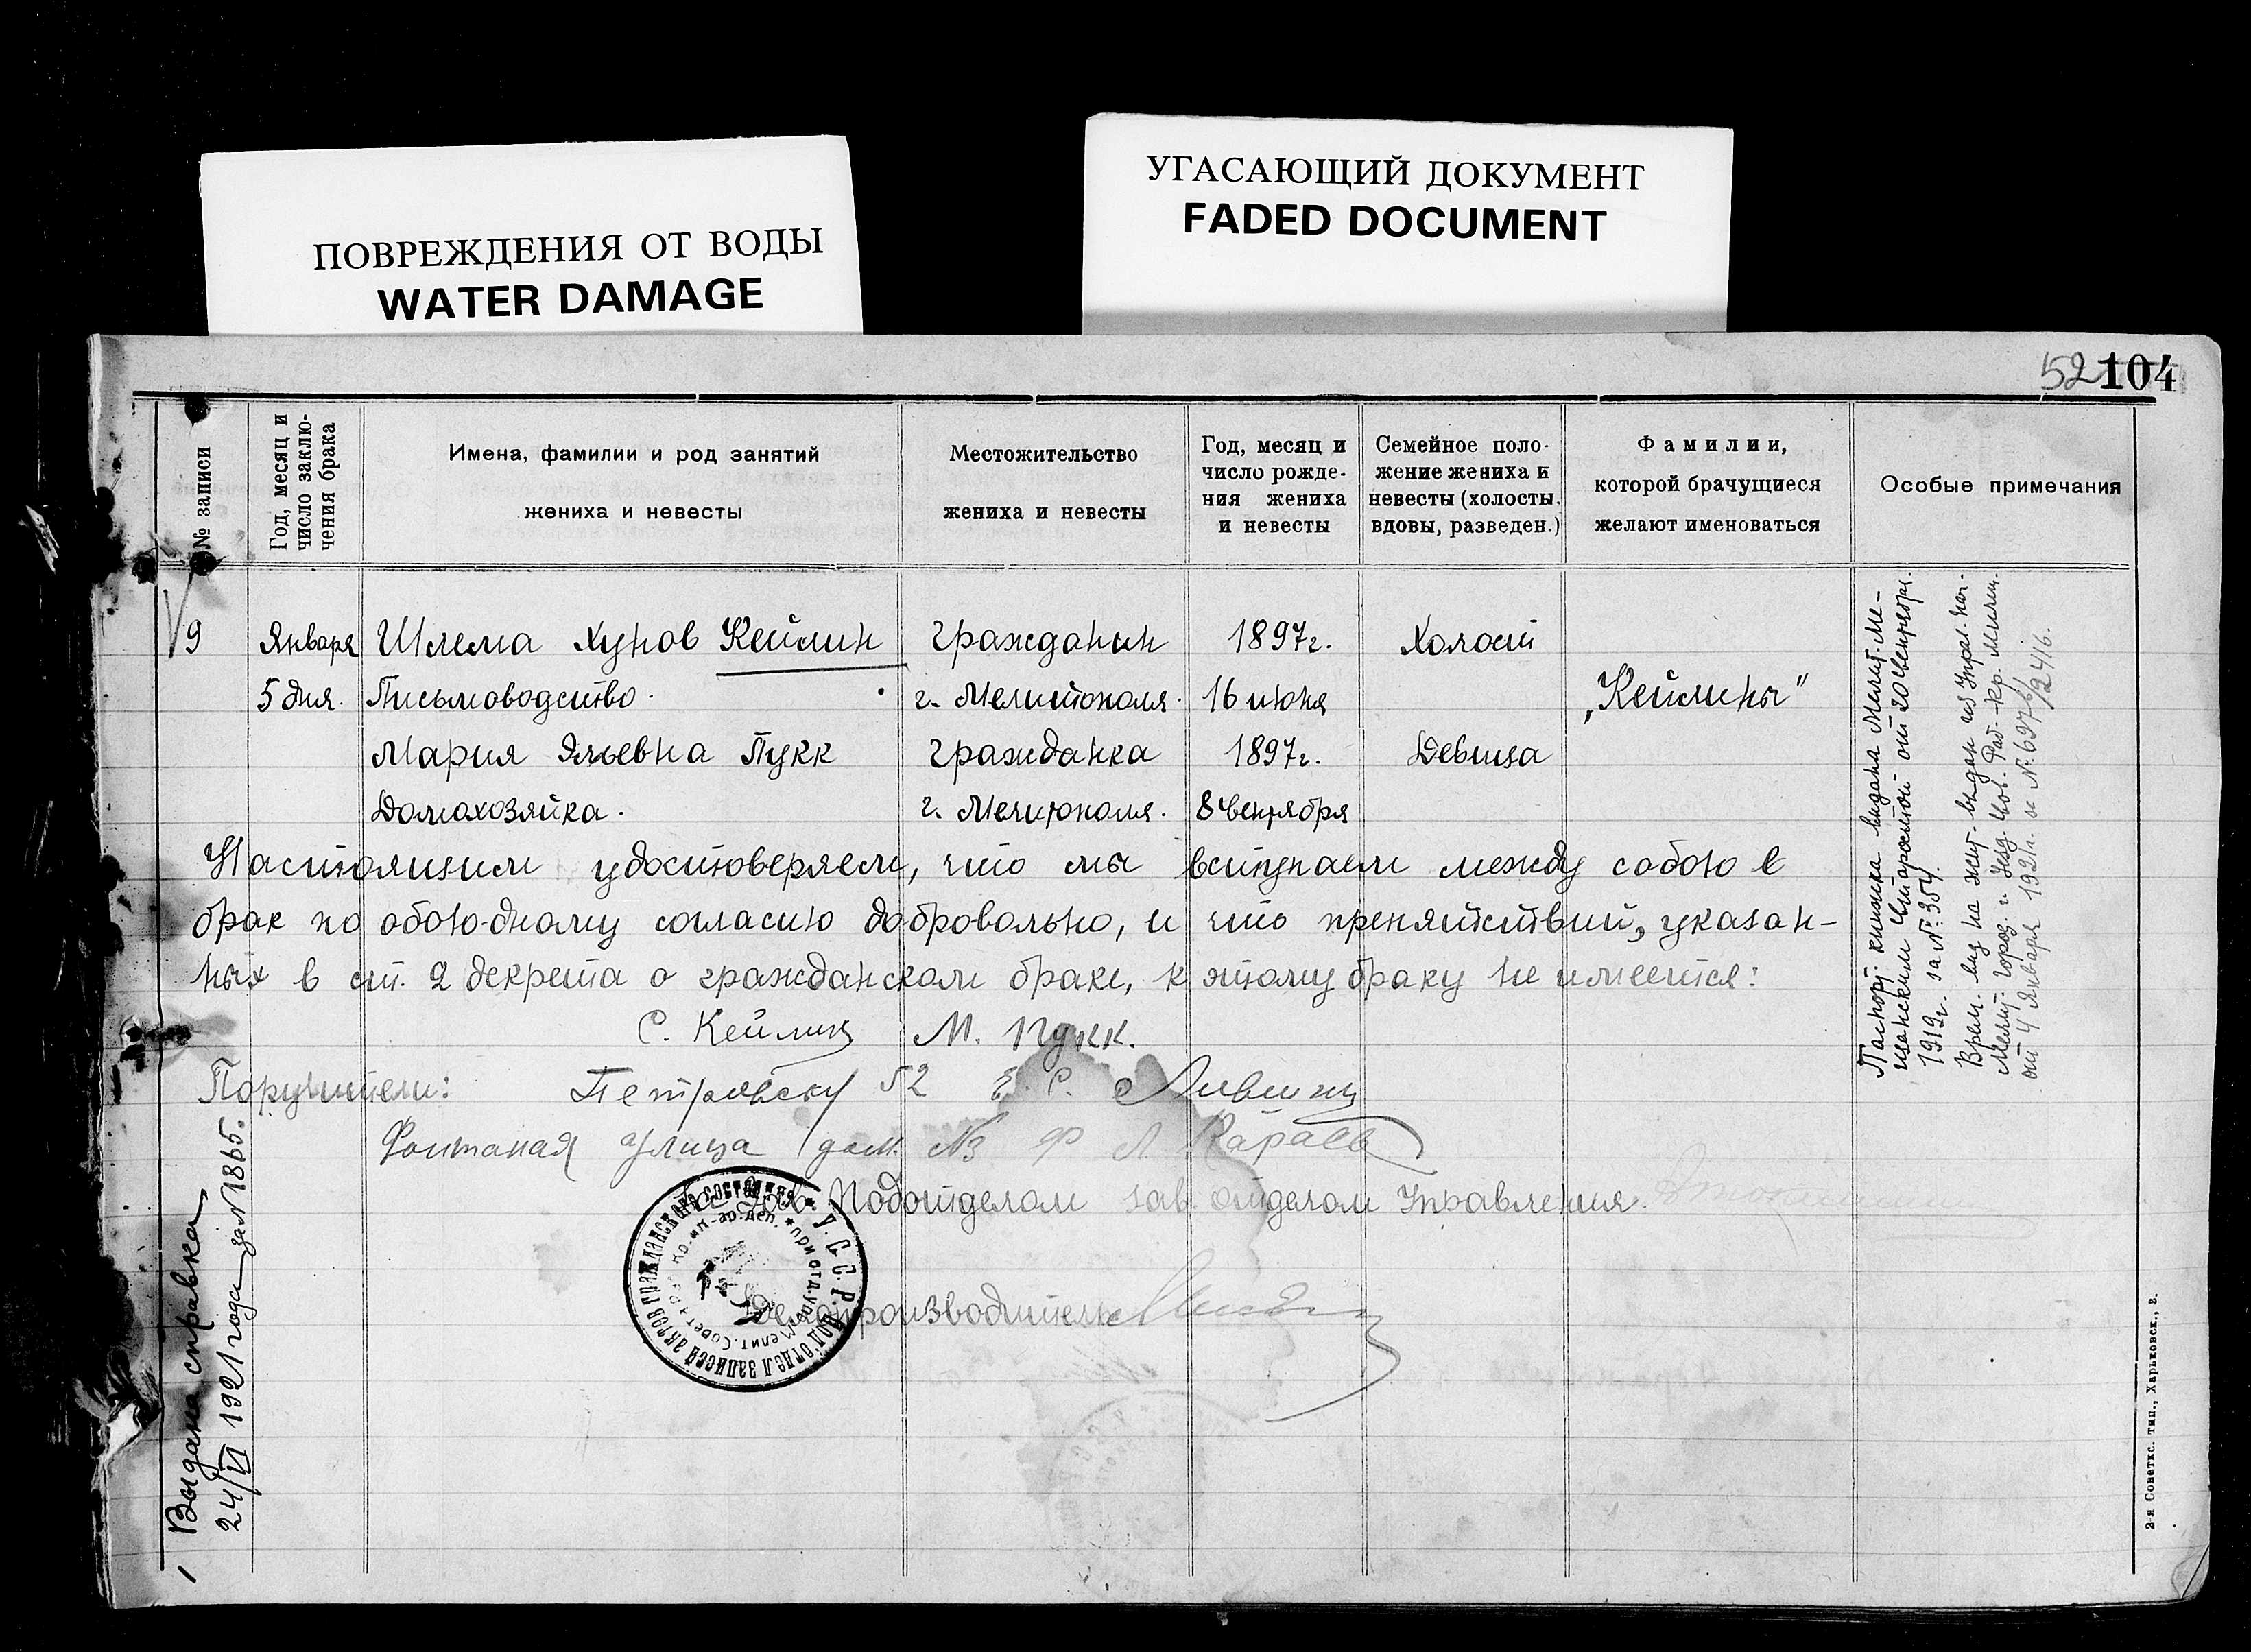 ПОВРЕЖДЕНИЯ ОТ ВОДЫ
WATER DAMAGE
УГАСАЮЩИЙ ДОКУМЕНТ
FADED DOCUMENT
52 104
№ записи
Год, месяц и
число заклю-
чения брака
Имена, фамилии и род занятий
жениха и невесты
Местожительство
жениха и невесты
Год, месяц и
число рожде-
ния жениха
и невесты
Семейное поло-
жение жениха и
невесты (холосты.
вдовы, разведен.)
Фамилии,
которой брачущиеся
желают именоваться
Особые примечания
9 Января Шлема Хунов Кейлин гражданин 1897г. Холост
5 дня. Письмоводство. г. Мелитополя. 16 июня „Кейлины"
Мария Эльевна Пукк гражданка 1897г. Девица
Домохозяйка. г. Мелитополя. 8 сентября
Настоящим удостоверяем, что мы вступаем между собою в
брак по обоюдному согласию добровольно, и что препятствий, указан-
ных в ст. 2 декрета о гражданском браке, к этому браку не имеется:
С. Кейлин М. Пукк.
Поручители: Петровск 52 Е. С. Лившиц
Фонтаная улица дом N3 Ф Л Караев
Зав. Подотделом зав. отделом Управления.
Делопроизводитель
Паспорт. книжка выдана Мелит. Ме-
щанским Старостой от 20 сентября.
1919г. за №: 354.
Врем. вид на жит. выдан из Управ. нач-
Мелит. город. и уезд. Сов. Раб.-Кр. Милиц.
от 4 Января 1921г. за №: 6976/2416.
Выдана справка
24/VI 1921 года за N 1865.
У. С. С. Р. Подотдел записи актов гражданского состояния
при отд. упр. Мелит. Совета
2-я Советск. тип., Харьковск., 2.